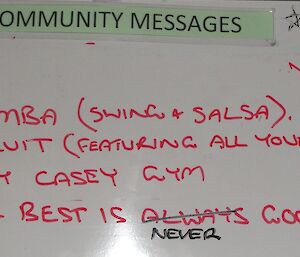 OMMUNITY MESSAGES
MBA (SWING & SALSA).
UIT (FEATURING ALL YOU
Y CASEY GYM
BEST IS ALWAYS GOO
NEVER